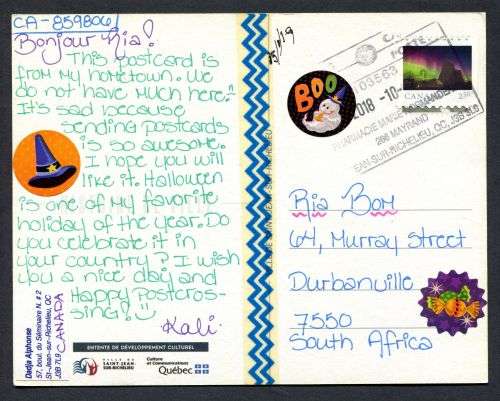 CA-859806
Bonjour Ria!
This postcard is
from my hometown. We
do not have much here.
It's sad because
sending postcards
is so awesome.
I hope you will
like it. Halloween
is one of my favorite
holiday of the year. Do
you celebrate it in
your country? I wish
you a nice day and
Happy Postcros-
sing! :)
Kali
57, boul. du Séminaire N. # 2
St-Jean-sur-Richelieu, QC
J3B 7L9 CANADA
ENTENTE DE DÉVELOPPEMENT CULTUREL
VILLE DE
SAINT-JEAN-
SUR-RICHELIEU
Culture
et Communications
Québec
BOO
03563
2018-10-
266 MAYRAND
EAN-SUR-RICHELIEU, QC, J3B 3L0
CANADA
Ria Bom
64, Murray Street
Durbanville
7550
South Africa